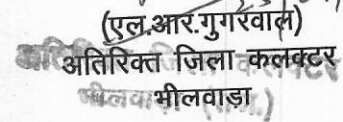 (एल.आर.गुगरवाल)
अतिरिक्त जिला कलक्टर
भीलवाड़ा